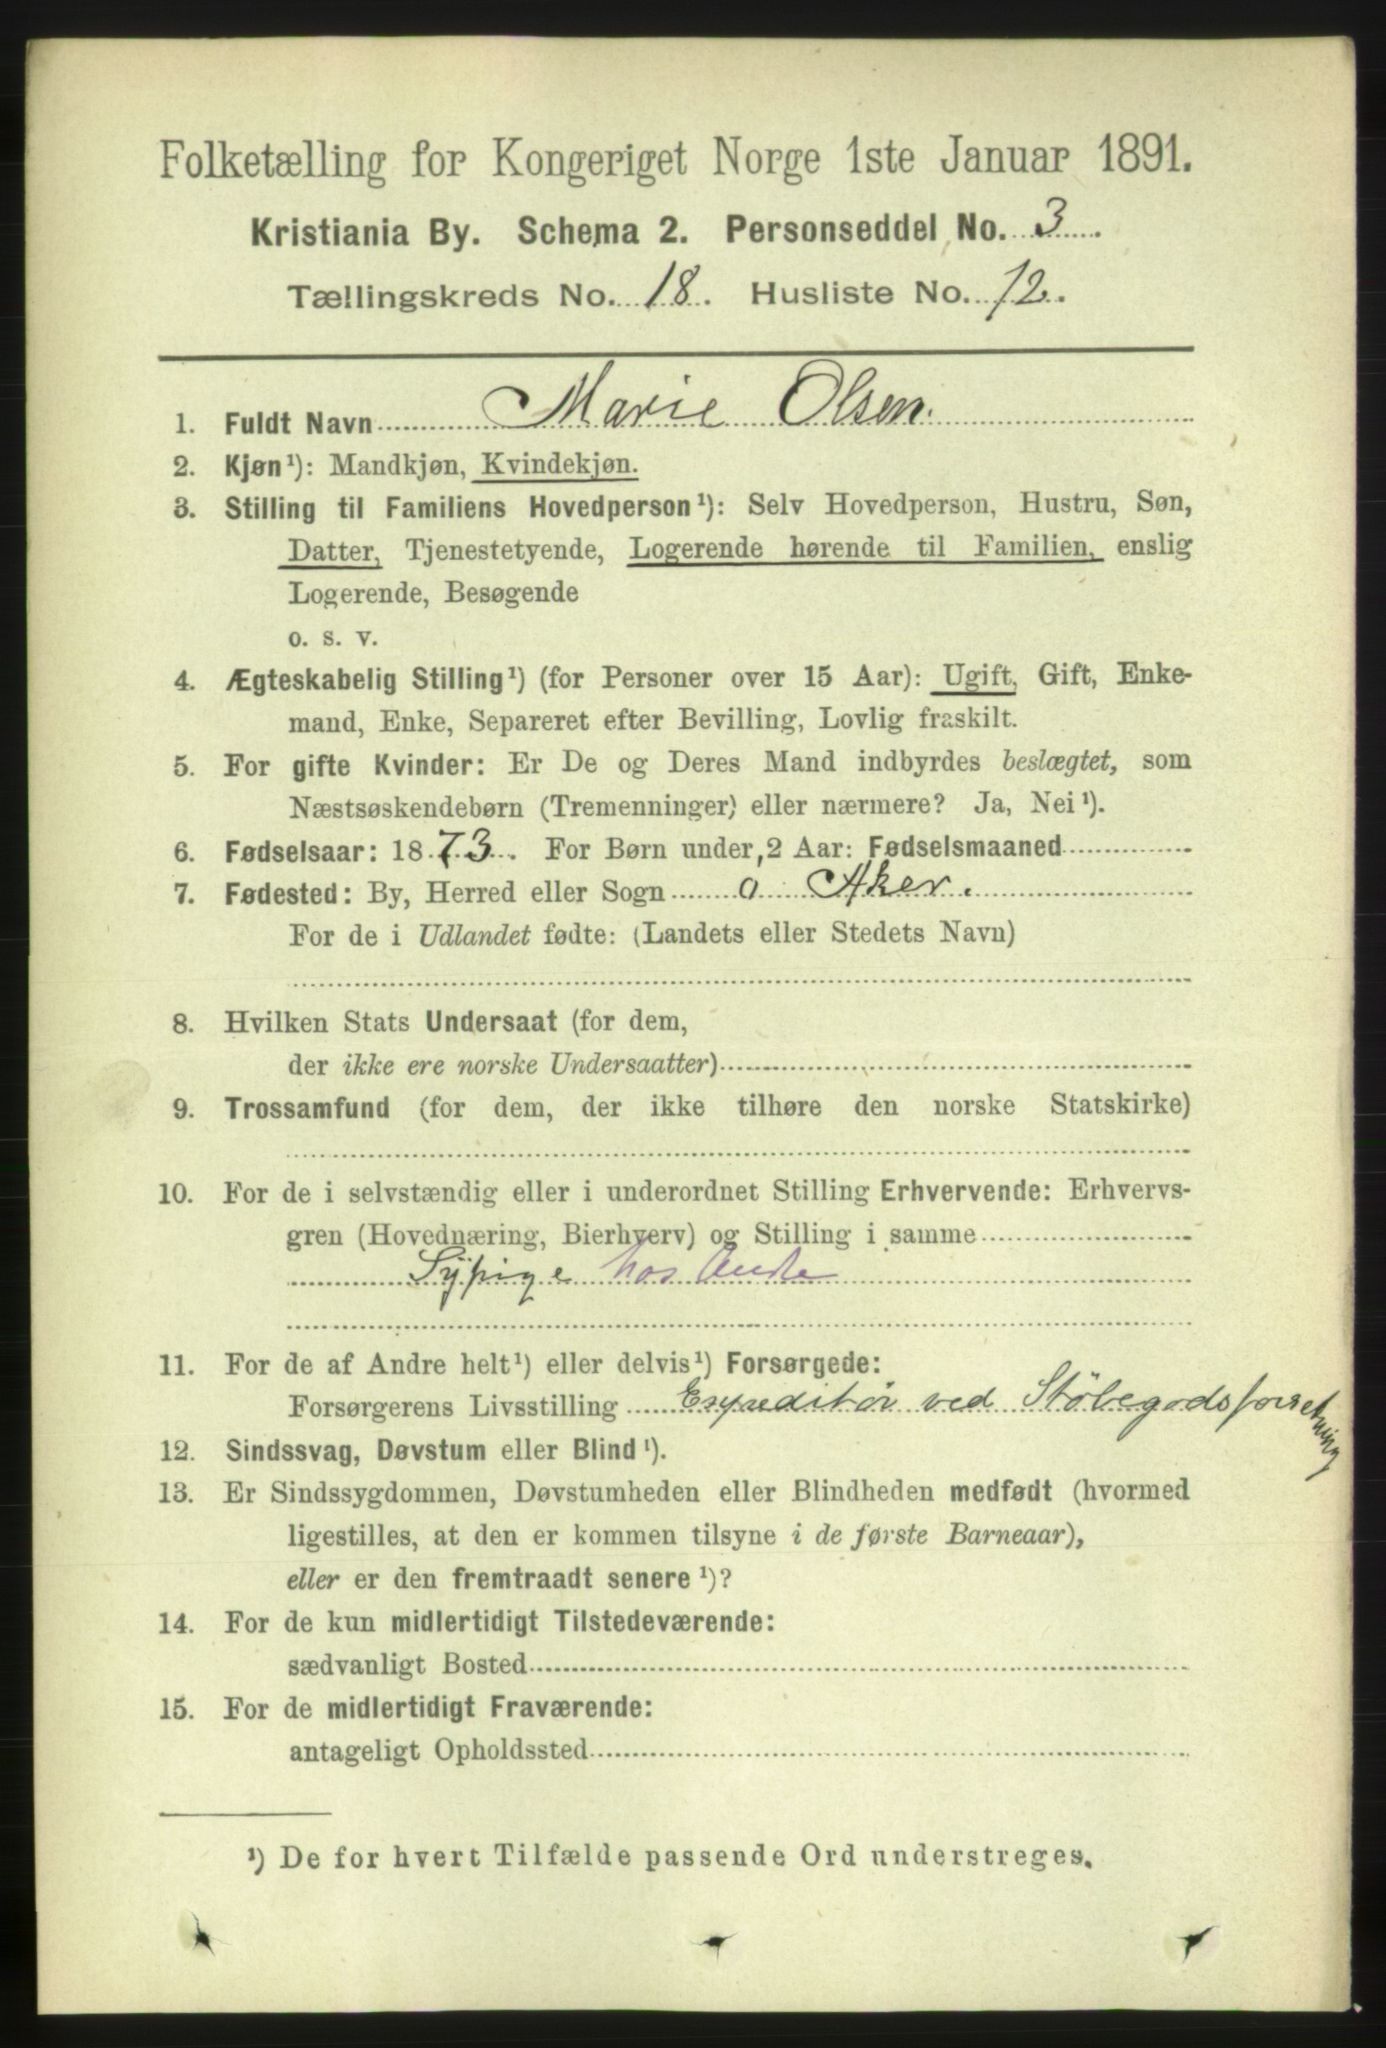 Folketælling for Kongeriget Norge 1ste Januar 1891.
Kristiania By. Schema 2. Personseddel No. 3.
Tællingskreds No. 18. Husliste No. 12.
1. Fuldt Navn Marie Olsen.
2. Kjøn¹): Mandkjøn, Kvindekjøn.
3. Stilling til Familiens Hovedperson¹): Selv Hovedperson, Hustru, Søn,
Datter, Tjenestetyende, Logerende hørende til Familien, enslig
Logerende, Besøgende
o. s. v.
4. Ægteskabelig Stilling¹) (for Personer over 15 Aar): Ugift, Gift, Enke-
mand, Enke, Separeret efter Bevilling, Lovlig fraskilt.
5. For gifte Kvinder: Er De og Deres Mand indbyrdes beslægtet, som
Næstsøskendebørn (Tremenninger) eller nærmere? Ja, Nei¹).
6. Fødselsaar: 1873. For Børn under 2 Aar: Fødselsmaaned
7. Fødested: By, Herred eller Sogn o Aker.
For de i Udlandet fødte: (Landets eller Stedets Navn)
8. Hvilken Stats Undersaat (for dem,
der ikke ere norske Undersaatter)
9. Trossamfund (for dem, der ikke tilhøre den norske Statskirke)
10. For de i selvstændig eller i underordnet Stilling Erhvervende: Erhvervs-
gren (Hovednæring, Bierhverv) og Stilling i samme
Sypige hos Andre
11. For de af Andre helt¹) eller delvis¹) Forsørgede:
Forsørgerens Livsstilling Expeditør ved Støbegodsforretning
12. Sindssvag, Døvstum eller Blind¹).
13. Er Sindssygdommen, Døvstumheden eller Blindheden medfødt (hvormed
ligestilles, at den er kommen tilsyne i de første Barneaar),
eller er den fremtraadt senere¹)?
14. For de kun midlertidigt Tilstedeværende:
sædvanligt Bosted
15. For de midlertidigt Fraværende:
antageligt Opholdssted
¹) De for hvert Tilfælde passende Ord understreges.